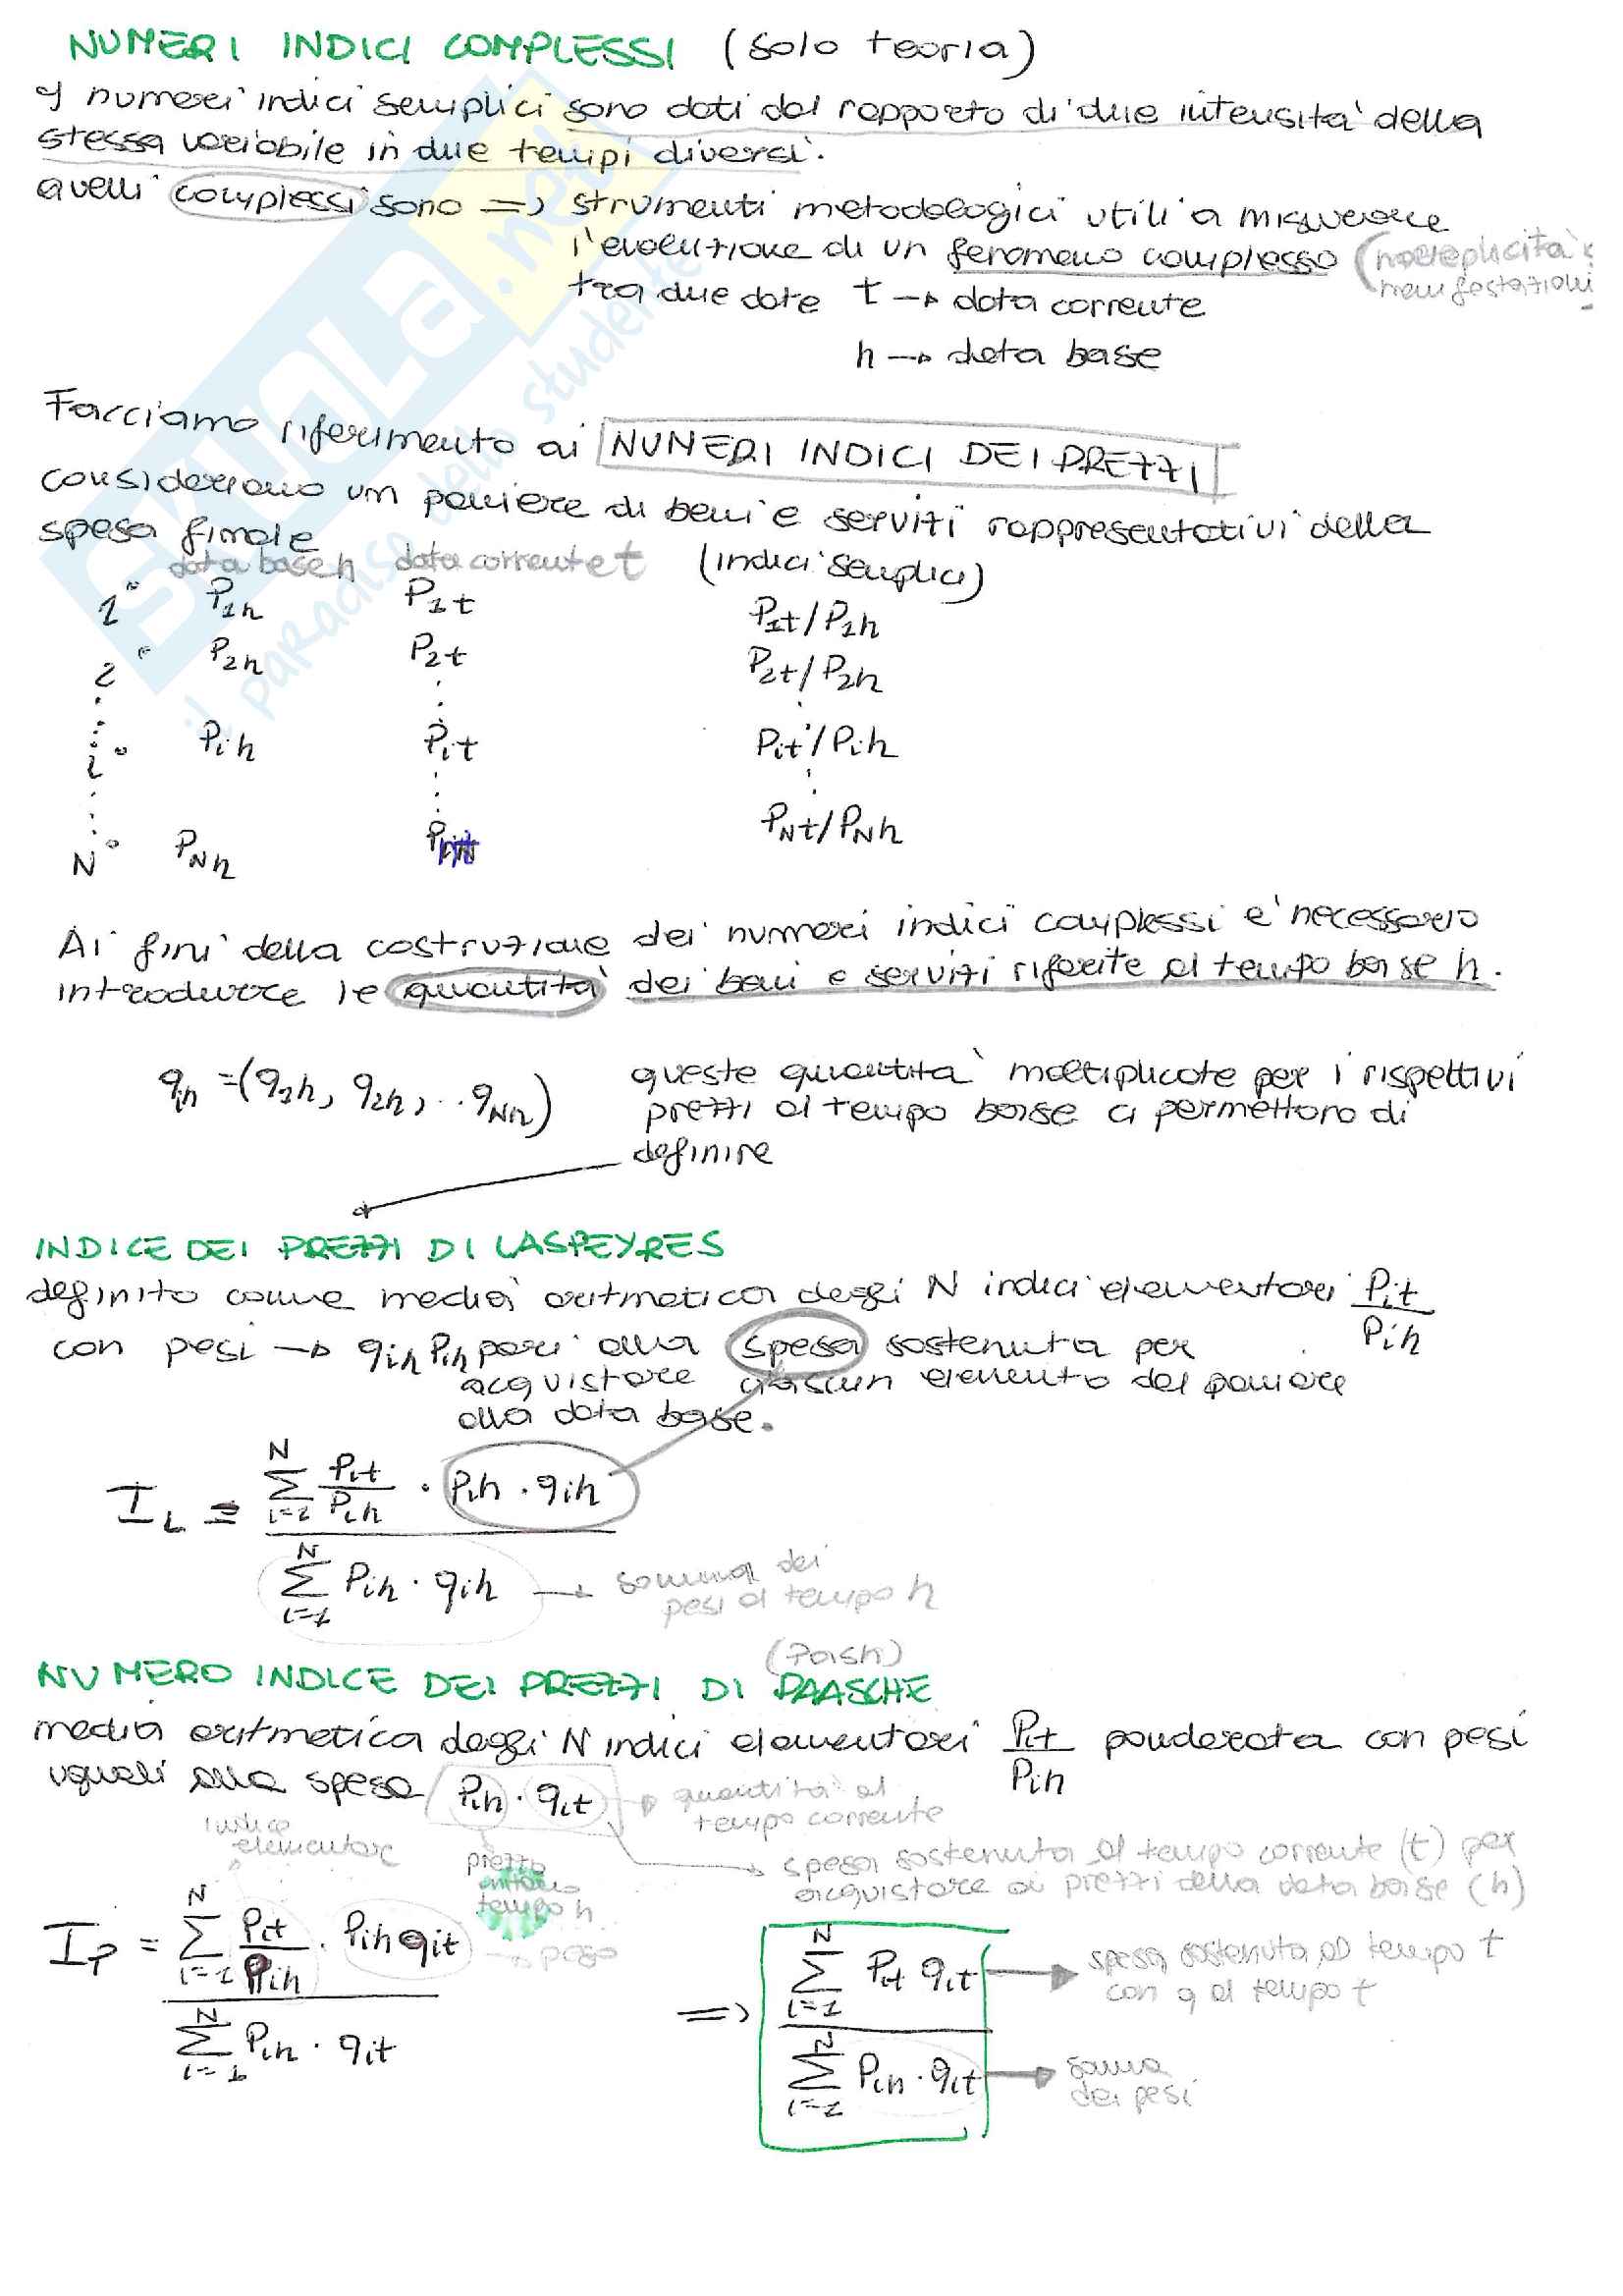 NUMERI INDICI COMPLESSI (solo teoria)
I numeri indici semplici sono dati dal rapporto di due intensità della
stessa variabile in due tempi diversi.
quelli complessi sono => strumenti metodologici utili a misurare
l'evoluzione di un fenomeno complesso (molteplicità
manifestazioni
tra due date t → data corrente
h → data base
Facciamo riferimento ai NUMERI INDICI DEI PREZZI
consideriamo un paniere di beni e servizi rappresentativi della
spesa finale
data base h data corrente t (indici semplici)
1° P1h P1t P1t/P1h
2° P2h P2t P2t/P2h
i° Pih Pit Pit/Pih
N° PNh PNt/PNh
Ai fini della costruzione dei numeri indici complessi è necessario
introdurre le quantità dei beni e servizi riferite al tempo base h.
qih =(q1h, q2h, .. qNh) queste quantità moltiplicate per i rispettivi
prezzi al tempo base ci permettono di
definire
INDICE DEI PREZZI DI LASPEYRES
definito come media aritmetica degli N indici elementari Pit/Pih
con pesi → qih Pih pari alla spesa sostenuta per
acquistare ciascun elemento del paniere
alla data base.
IL = Σ(i=1..N) Pit/Pih · Pih · qih
Σ(i=1..N) Pih · qih → somma dei
pesi al tempo h
(Pash)
NUMERO INDICE DEI PREZZI DI PAASCHE
media aritmetica degli N indici elementari Pit/Pih ponderata con pesi
uguali alla spesa Pih · qit → quantità al
tempo corrente
indice
elementare
prezzo
tempo h
→ spesa sostenuta al tempo corrente (t) per
acquistare ai prezzi della data base (h)
IP = Σ(i=1..N) Pit/Pih · Pih qit → peso
Σ(i=1..N) Pih · qit
=> Σ(i=1..N) Pit qit → spesa sostenuta al tempo t
con q al tempo t
Σ(i=1..N) Pih · qit → somma
dei pesi
SKUOLA.net
il paradiso dello studente